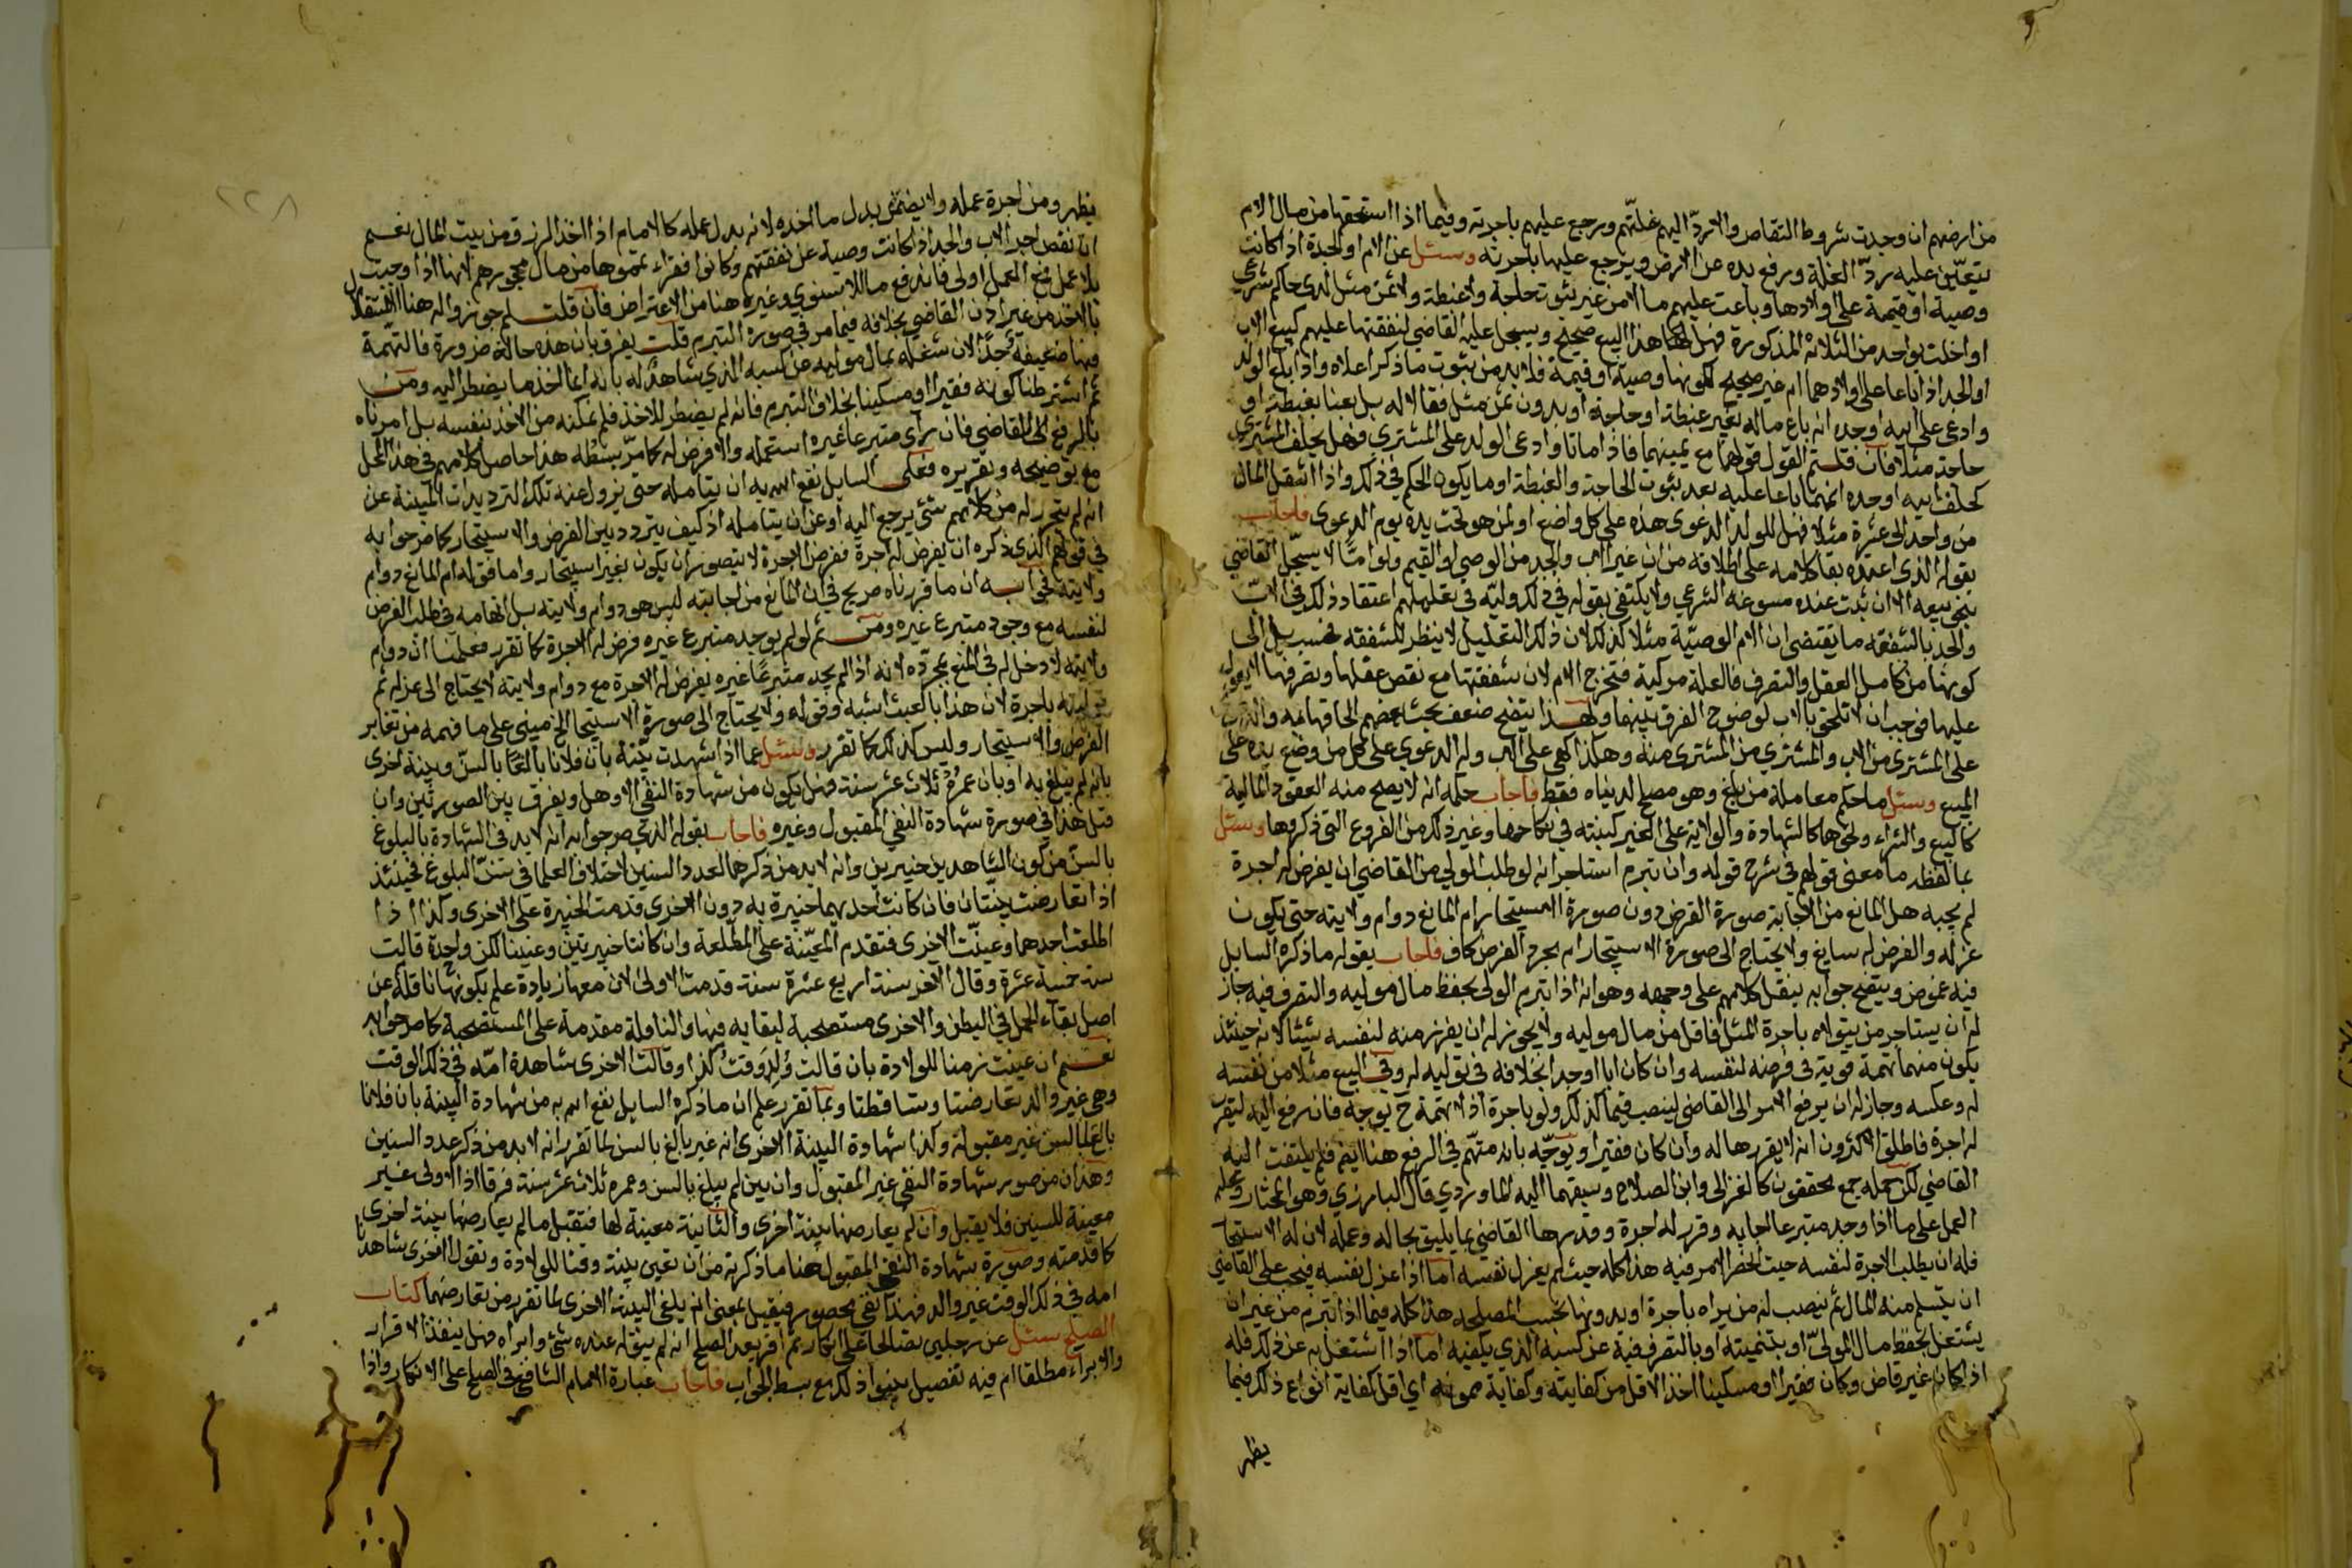 من ارضهم ان وجدت شروط التقاص والا ردّ اليهم غلتهم ورجع عليهم باجرته وفيما اذا استحقها من مال الام
يتعيّن عليه ردّ الغلة ورفع يده عن الارض ويرجع عليها باجرته وسئل عن الام او الجدة اذا كانت
وصية او قيمة على اولادها وباعت عليهم مالا من غير ثبوت حاجة ولا غبطة ولا ثمن مثل لدى حاكم شرعي
او اخلت بواحد من الثلاثة المذكورة فهل هذا البيع صحيح ويسجل عليه القاضي لنفقتها عليهم كبيع الاب
او الجد اذا باعا على اولادهما ام غير صحيح لكونها وصية او قيمة فلا بد من ثبوت ما ذكر اعلاه واذا بلغ الولد
وادعى على ابيه او جده انه باع ماله بغير غبطة او حاجة او بدون ثمن مثل فقالا له بل بعنا بغبطة او
حاجة مثلا فان قلتم القول قولهما مع يمينهما فاذا ماتا وادعى الولد على المشتري فهل يحلف المشتري
كحلف ابيه او جده انهما باعا عليه بعد ثبوت الحاجة والغبطة او ما يكون الحكم في ذلك واذا انتقل المال
من واحد الى عشرة مثلا فهل للولد الدعوى هذه على كل واضع او لمن هو تحت يده يوم الدعوى فاجاب
بقوله الذي اعتمده بقا كلامه على اطلاقه من ان غير الاب والجد من الوصي والقيم ولو امًّا لا يسجّل القاضي
بنحو بيعه الا ان ثبت عنده مسوغه الشرعي ولا يكتفي بقوله في ذلك وليّه في تعليلهم اعتقاد ذلك في الاب
والجد بالشفقة ما يقتضي ان الام الوصيّة مثلا كذلك لان ذلك التعليل لا ينظر للشفقة فحسب بل الى
كونها من كامل العقل والتصرف فالعلة مركبة فتخرج الام لان شفقتها مع نقص عقلها وتصرفها لا يعول
عليها فوجب ان لا تلحق بالاب لوضوح الفرق بينهما وبهذا يتضح ضعف بحث بعضهم الحاقها به والقول
على المشتري من الاب والمشتري من المشتري منه وهكذا كهي على الاب وله الدعوى على كل من وضع يده على
المبيع وسئل ما حكم معاملة من بلغ وهو مصلح لدنياه فقط فاجاب حكمه انه لا يصح منه العقود المالية
كالبيع والشراء ونحوها كالشهادة والولاية على الغير كبنته في نكاحها وغير ذلك من الفروع التي ذكروها وسئل
بما لفظه ما معنى قولهم في شرح قوله وان تبرم استاجر انه لو طلب الولي من القاضي ان يفرض له اجرة
لم يجبه هل المانع من الاجابة صورة الفرض دون صورة الاستيجار ام المانع دوام ولايته حتى يكون
عزله والفرض له سايغ ولا يحتاج الى صورة الاستيجار ام مجرد الفرض كاف فاجاب بقوله ما ذكره السايل
فيه غموض ويتضح جوابه بنقل كلامهم على وجهه وهو انه اذا تبرم الولي بحفظ مال موليه والتصرف فيه جاز
له ان يستاجر من يتولاه باجرة المثل فاقل من مال موليه ولا يجوز له ان يفرز منه لنفسه شيئا لانه حينئذ
يكون متهما تهمة قوية في فرضه لنفسه وان كان ابا او جدا بخلافه في توليه له وفي البيع مثلا من نفسه
له وعكسه وجاز له ان يرفع الامر الى القاضي لينصب قيما كذلك ولو باجرة اذ لا تهمة ح بوجه فان رفع اليه ليقرر
له اجرة فاطلق الاكثرون انه لا يقررها له وان كان فقيرا ويوجّه بانه متهم في الرفع هنا ايضا فلم يلتفت اليه
القاضي لكن حمله جمع محققون كالغزالي وابن الصلاح وسبقهما اليه الماوردي قال البارزي وهو المختار ومحله
العمل على ما اذا وجد متبرعا اجابه وقرر له اجرة وقدرها القاضي بما يليق بحاله وعمله لان له الاستيجار
فله ان يطلب الاجرة لنفسه حيث انحصر الامر فيه هذا كله حيث لم يعزل نفسه اما اذا عزل نفسه فيجب على القاضي
ان يتسلم منه المال ثم ينصب له من يراه باجرة او بدونها بحسب المصلحة هذا كله فيما اذا تبرم من غير ان
يشتغل بحفظ مال المولىّ او بتنميته او بالتصرف فيه عن كسبه الذي يكفيه اما اذا اشتغل به عن ذلك فله
اذا كان غير قاض وكان فقيرا او مسكينا اخذ الاقل من كفايته وكفاية ممونه اي اقل كفاية انواع ذلك فيما
يظهر
٢٢٨
يظهر ومن اجرة عمله ولا يضمن بدل ما اخذه لانه بدل عمله كالامام اذا اخذ الرزق من بيت المال نعم
ان نقص اجر الاب والجد اذا كانت وصية عن نفقتهم وكانوا فقراء تمموها من مال محجورهم لانها اذا وجبت
بلا عمل فمع العمل اولى فاندفع ما للاسنوي وغيره هنا من الاعتراض فان قلت لم جوزوا له هنا الاستقلال
بالاخذ من غير اذن القاضي بخلافه فيما مر في صورة التبرم قلت يفرق بان هذه حالة ضرورة فالتهمة
فيها ضعيفة جدًّا لان شغله بمال موليه عن كسبه الذي شاهدٌ له بانه انما اخذ ما يضطر اليه ومن
ثم اشترطنا كونه فقيرا او مسكينا بخلاف التبرم فانه لم يضطر للاخذ فلم نمكنه من الاخذ بنفسه بل امرناه
بالرفع الى القاضي فان رآى متبرعا غيره استعمله والا فرض له كما مرّ بسطه هذا حاصل كلامهم في هذا المحل
مع توضيحه وتقريره فعلى السايل نفع الله به ان يتامله حتى يزول عنه تلك الترديدات المبينة عن
انه لم يتحرر له من كلامهم شئ يرجع اليه او عن ان يتامله اذ كيف يتردد بين الفرض والاستيجار كما صرحوا به
في قولهم الذي ذكره ان يفرض له اجرة ففرض الاجرة لا يتصور ان يكون بغير استيجار واما قوله ام المانع دوام
ولايته فجوابه ان ما قررناه صريح في ان المانع من اجابته ليس هو دوام ولايته بل اتهامه في طلب الفرض
لنفسه مع وجود متبرع غيره ومن ثم لو لم يوجد متبرع غيره فرض له الاجرة كما تقرر فعلمنا ان دوام
ولايته لا دخل له في المنع بمجرّده لانه اذا لم يجد متبرعًا غيره يفرض له الاجرة مع دوام ولايته لا يحتاج الى عزله ثم
توليته باجرة لان هذا بالعبث اشبه وقوله ولا يحتاج الى صورة الاستيجار الخ مبني على ما فهمه من تغاير
الفرض والاستيجار وليس كذلك كما تقرر وسئل عما اذا شهدت بيّنة بان فلانا بالغا بالسنّ وبينة اخرى
بانه لم يبلغ به او بان عمره ثلاث عشر سنة فهل يكون من شهادة النفي الا وهل ويفرق بين الصورتين وان
قبل هذا في صورة شهادة النفي المقبول وغيره فاجاب بقوله الذي صرحوا به انه لا بد في الشهادة بالبلوغ
بالسنّ من كون الشاهدين خبيرين وانه لا بد من ذكرهما لعدد السنين لاختلاف العلما في سنّ البلوغ فحينئذ
اذا تعارضت بينتان فان كانت احديهما خبيرة به دون الاخرى قدمت الخبيرة على الاخرى وكذا اذا
اطلقت احدهما وعينت الاخرى فتقدم المعيّنة على المطلقة وان كانتا خبيرتين وعينتا لكن واحدة قالت
سنه خمسة عشرة وقال الاخر سنه اربع عشرة سنة قدمت الاولى لان معها زيادة علم بكونها ناقلة عن
اصل بقاء الحمل في البطن والاخرى مستصحبة لبقايه فيها والناقلة مقدمة على المستصحبة كما صرحوا به
نعم ان عينت زمنا للولادة بان قالت وُلد وقت كذا وقالت الاخرى شاهدة امّه في ذلك الوقت
وهي غير والد تعارضتا وتساقطتا وبما تقرر علم ان ما ذكره السايل نفع الله به من شهادة البينة بان فلانا
بالغا بالسن غير مقبولة وكذا شهادة البينة الاخرى انه غير بالغ بالسن لما تقرر انه لا بد من ذكر عدد السنين
وهذان من صور شهادة النفي غير المقبول وان بين لم يبلغ بالسن وعمره ثلاث عشر سنة فرقا اذ الاولى غير
معينة للسنين فلا يقبل وان لم يعارضها بينة اخرى والثانية معينة لها فتقبل ما لم يعارضها بينة اخرى
كما قدمته وصورة شهادة النفي المقبول هنا ما ذكرته من ان تعين بينة وقتا للولادة وتقول الاخرى شاهدنا
امه في ذلك الوقت غير والد فهذا نفي محصور فيقبل بمعنى انه يلغي البينة الاخرى لما تقرر من تعارضهما كتاب
الصلح سئل عن رجلين تصالحا على انكار ثم اقر بعد الصلح انه لم يبق له عنده شئ وابراه فهل ينفذ الاقرار
والابراء مطلقا ام فيه تفصيل بينوا ذلك مع بسط الجواب فاجاب عبارة الامام الشافعي في الصلح على الانكار واذا